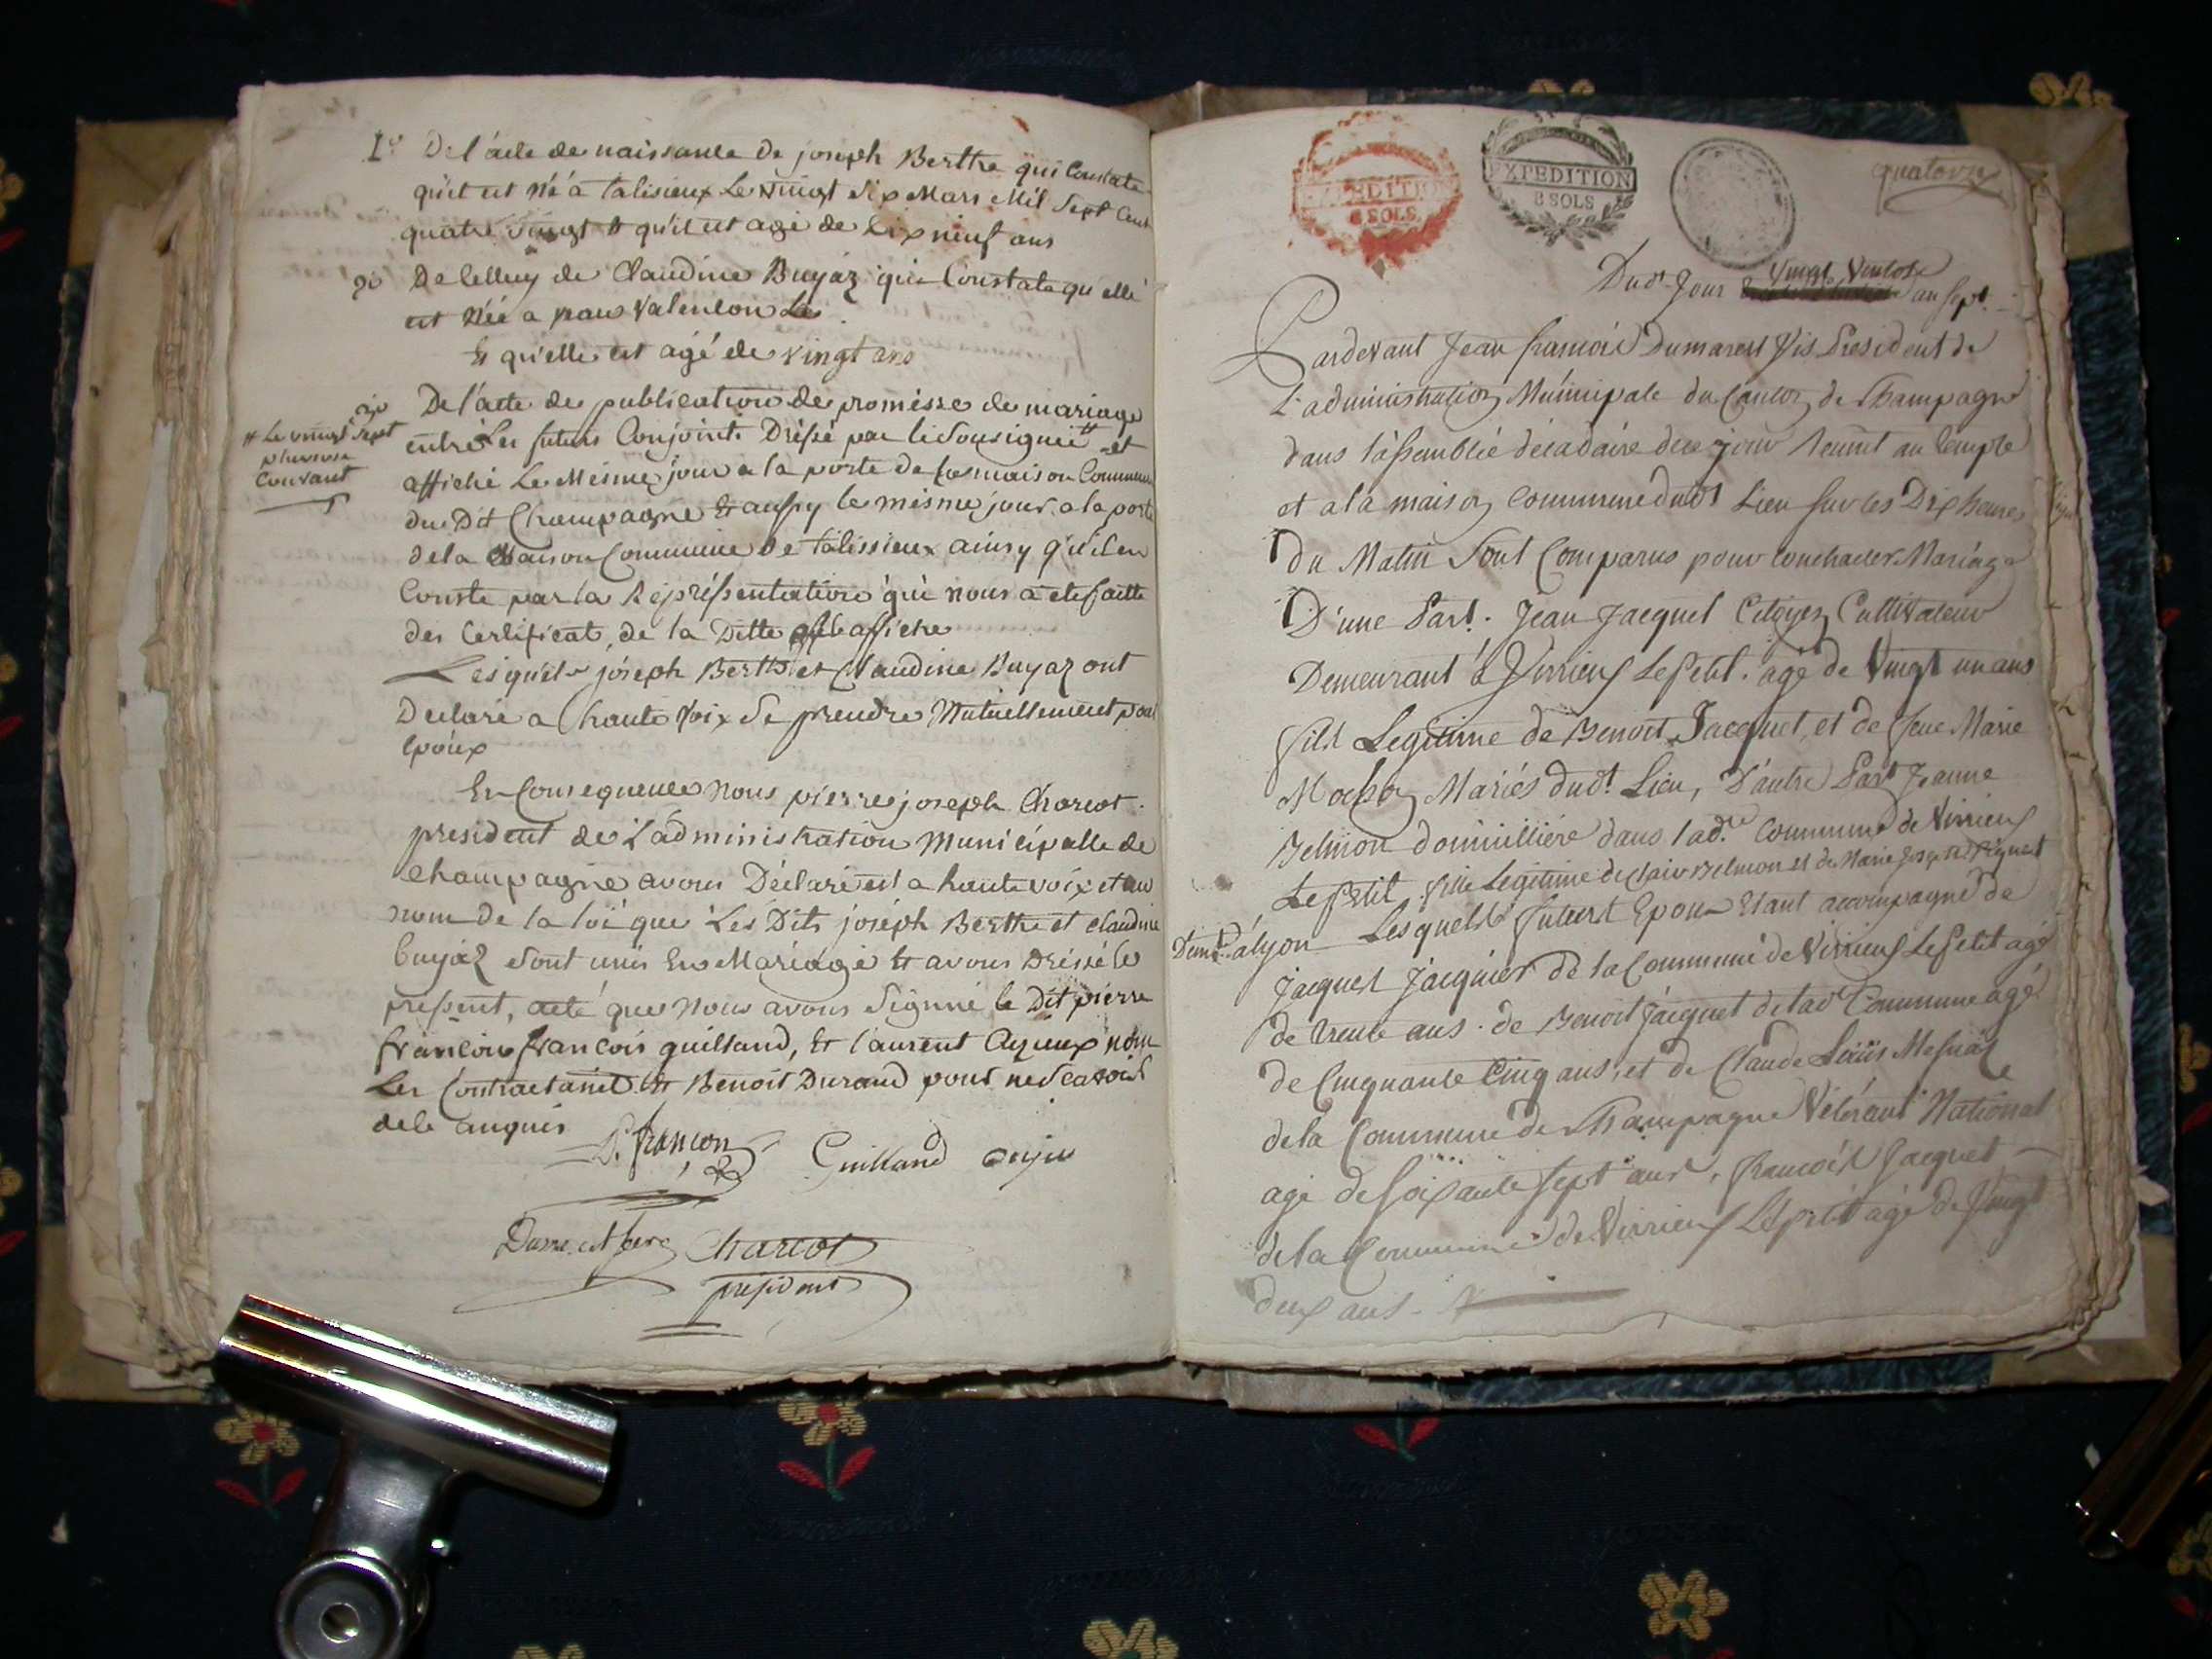 1º De l'acte de naissance de joseph Berthe qui Constate
qu'il est né à talissieux Le vingt six Mars Mil Sept Cent
quatre vingt & qu'il est agé de Dix neuf ans
2º De Celluy de Claudine Buyaz qui Constate qu'elle
est Née a
& qu'elle est agé de vingt ans
3º De l'acte de publication de promesse de mariage
entre Les futurs Conjoints Dréssé par le Sousigné # et
# Le vingt Sept
pluviose
Courant
affiché Le Mesme jour a la porte de la maison Commune
du Dit Champagne & aussy le mesme jour a la porte
de la Maison Commune de talissieux ainsy qu'il en
Conste par la Représsentation qui nous a eté faitte
des Certificat, de la Ditte affiche
Lesquels joseph Berthe et Claudine Buyaz ont
Declaré a haute voix Se prendre Mutuellement pour
Epoux
En Consequence Nous pierre joseph Charcot
president de L'administration Municipalle de
Champagne avons Déclaré a haute voix et au
nom de la loi que Les Dits joseph Berthe et claudine
buyaz Sont unis En Mariage & avons Dréssé le
present, acte que Nous avons Signné le Dit pierre
françon françois guilland, & laurent Aujeux non
Les Contractants & Benoit Durand pour ne Scavoir
de ce enquis
P. françon Guilland aujeu
Charcot
president
EXPEDITION
8 SOLS
EXPEDITION
8 SOLS
quatorze
Dud. Jour vingt Ventose an Sept
Pardevant Jean françois Dumarest Vis President de
L'administration Municipale du Canton de Champagne
dans l'assemblée décadaire de ce jour Reunit au temple
et a la maison Commune dudt Lieu sur les Dix heures
Du Matin Sont Comparus pour Contracter Mariage
D'une Part. Jean Jacquet Citoyen Cultivateur
Demeurant à Virrieux Le Petit. agé de Vingt un ans
fils Legitime de Benoit Jacquet, et de feue Marie
Mariés dudt Lieu, D'autre Part Jeanne
Belmon domicilliére dans lade Commune de Virrieux
Le Petit. fille Legitime de Clair Belmon et de Marie Josepte
Demt à lyon Lesquels futurs Epoux Etant accompagné de
Jacques Jacquier de la Commune de Virrieux Le Petit agé
de trente ans. de Benoit Jacquet de lad Commune agé
de Cinquante Cinq ans, et de Claude Louis
de la Commune de Champagne Vétérant National
agé de Soixante sept ans, françois Jacquet
de la Commune de Virrieux Le petit agé de Vingt
deux ans.